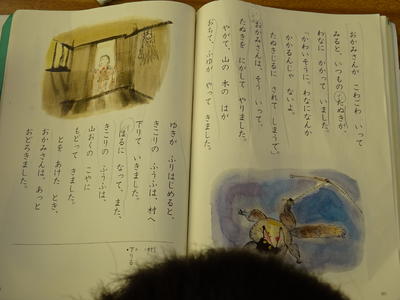 おかみさんが こわごわ いって
みると、いつもの たぬきが、
わなに かかって いました。
「かわいそうに。わなになんか
かかるんじゃ ないよ。
たぬきじるに されて しまうで。」
おかみさんは、そう いって、
たぬきを にがして やりました。
やがて、山の 木の はが
おちて、ふゆが やって きました。
ゆきが ふりはじめると、
きこりの ふうふは、村へ
下りて いきました。
はるに なって、また、
きこりの ふうふは、
山おくの こやに
もどって きました。
とを あけた とき、
おかみさんは、あっと
おどろきました。
村
下りる